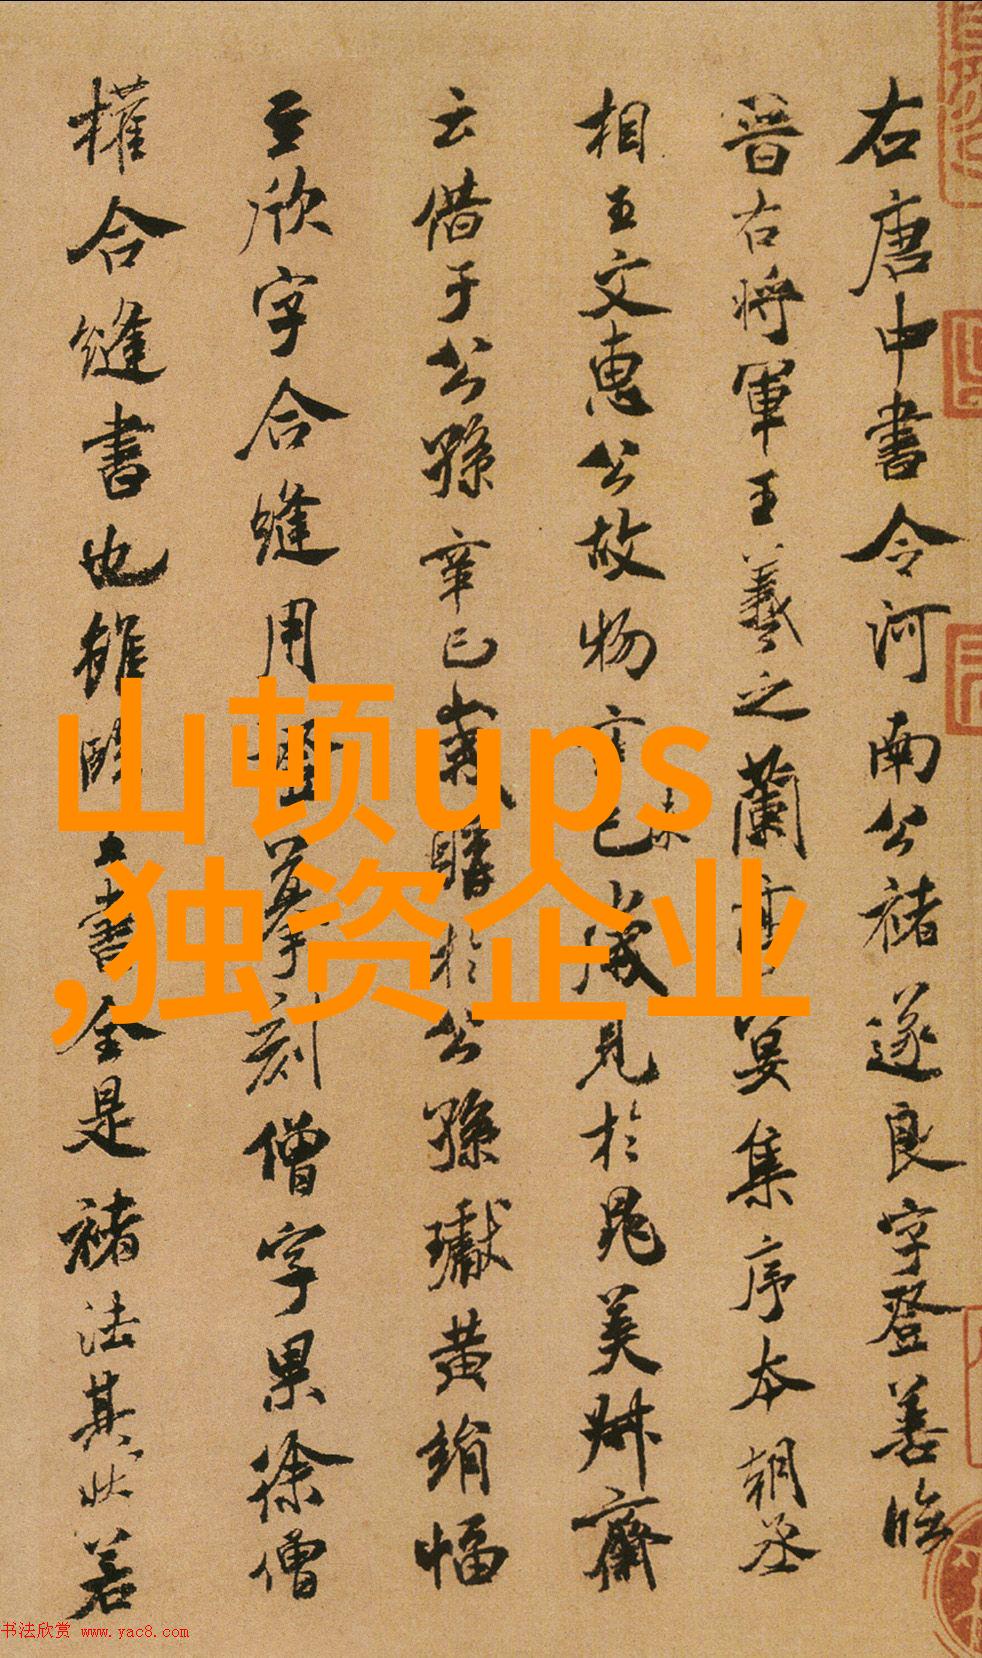 右唐中書令河南公褚遂良字登善臨
晉右将軍王羲之蘭亭宴集序本朝丞
相王文惠公故物辛巳歲見於晁美叔齋
云借于公孫辛巳歲購於公孫瓛黄絹幅
至欣字合縫用證摹刻僧字果徐僧
權合縫書也雖臨王書全是褚法其狀若
未
山顿ups
,独资企业
书法欣赏 www.yac8.com